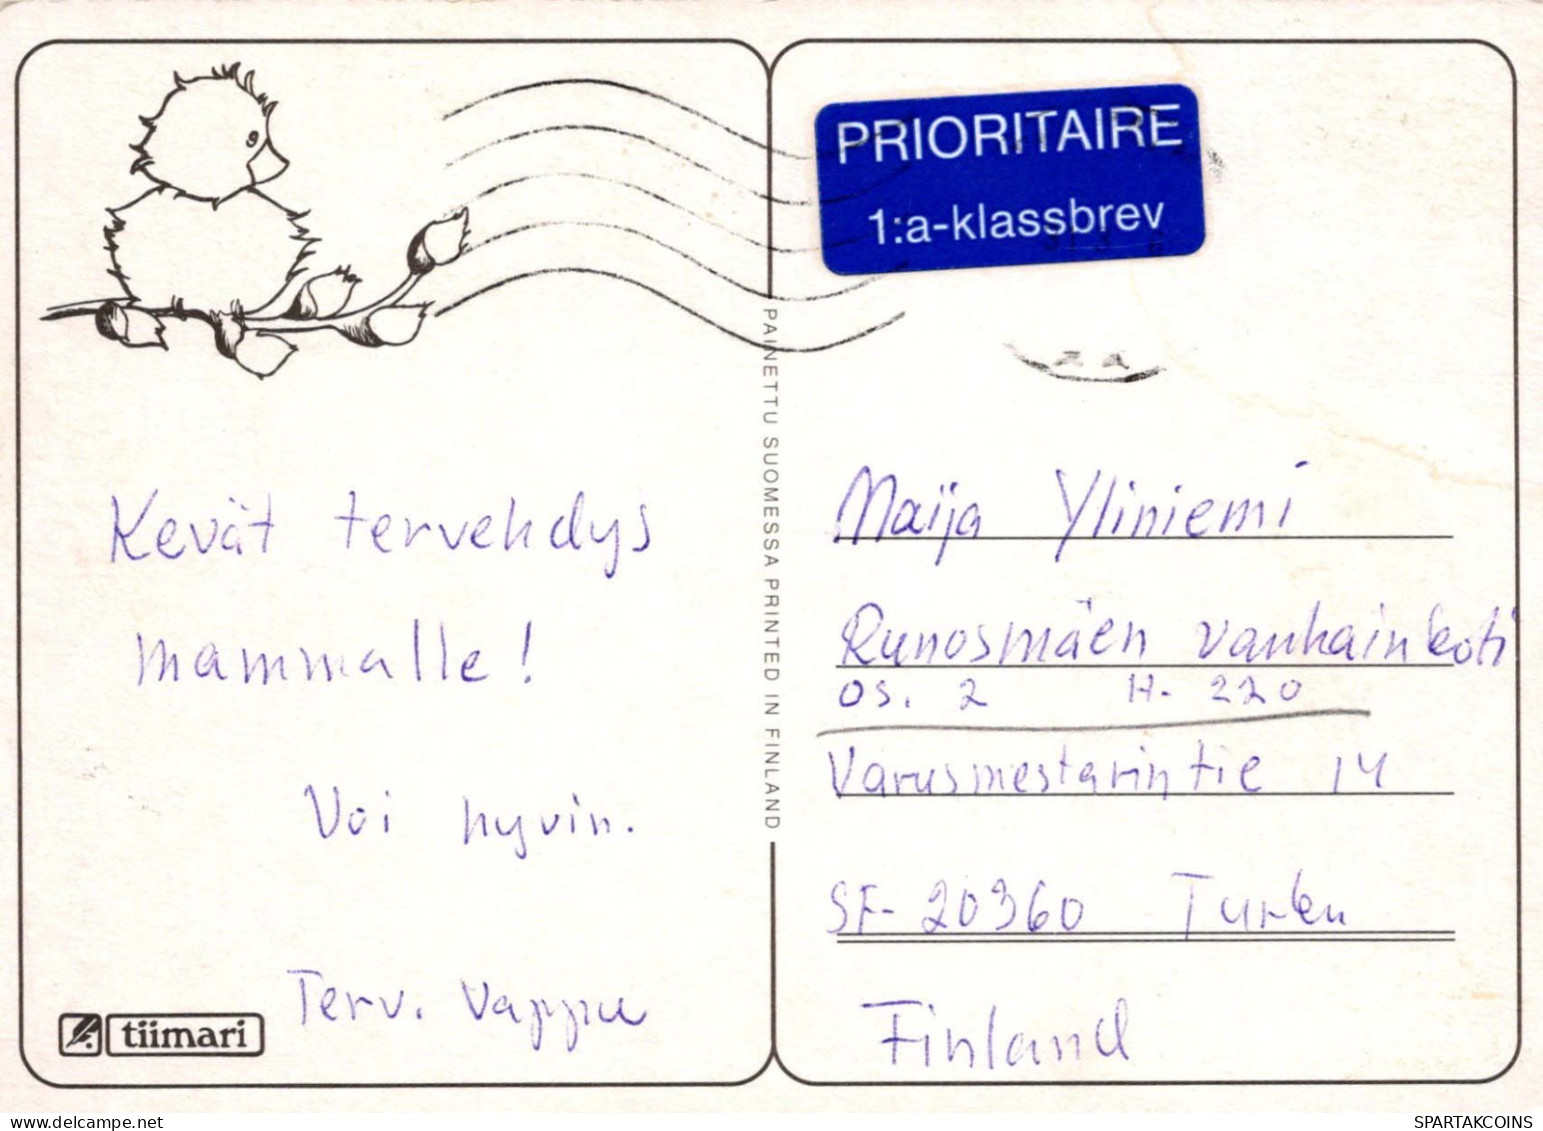 PRIORITAIRE
1:a-klassbrev
Kevät tervehdys
mammalle!
Voi hyvin.
Terv. Vappu
tiimari
PAINETTU SUOMESSA PRINTED IN FINLAND
Maija Yliniemi
Runosmäen vanhainkoti
OS. 2 H. 220
Varusmestarintie 14
SF-20360 Turku
Finland
SPARTAKCOINS